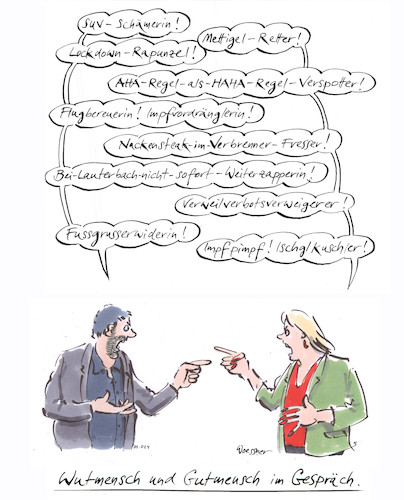 SUV-Schämerin!
Mettigel-Retter!
Lockdown-Rapunzel!
AHA-Regel-als-HAHA-Regel-Verspotter!
Flugbereuerin! Impfvordränglerin!
Nackensteak-im-Verbrenner-Fresser!
Bei-Lauterbach-nicht-sofort-Weiterzapperin!
Verweilverbotsverweigerer!
Fussgrusserwiderin!
Impfpimpf! Ischglkuschler!
Woessner
Wutmensch und Gutmensch im Gespräch.